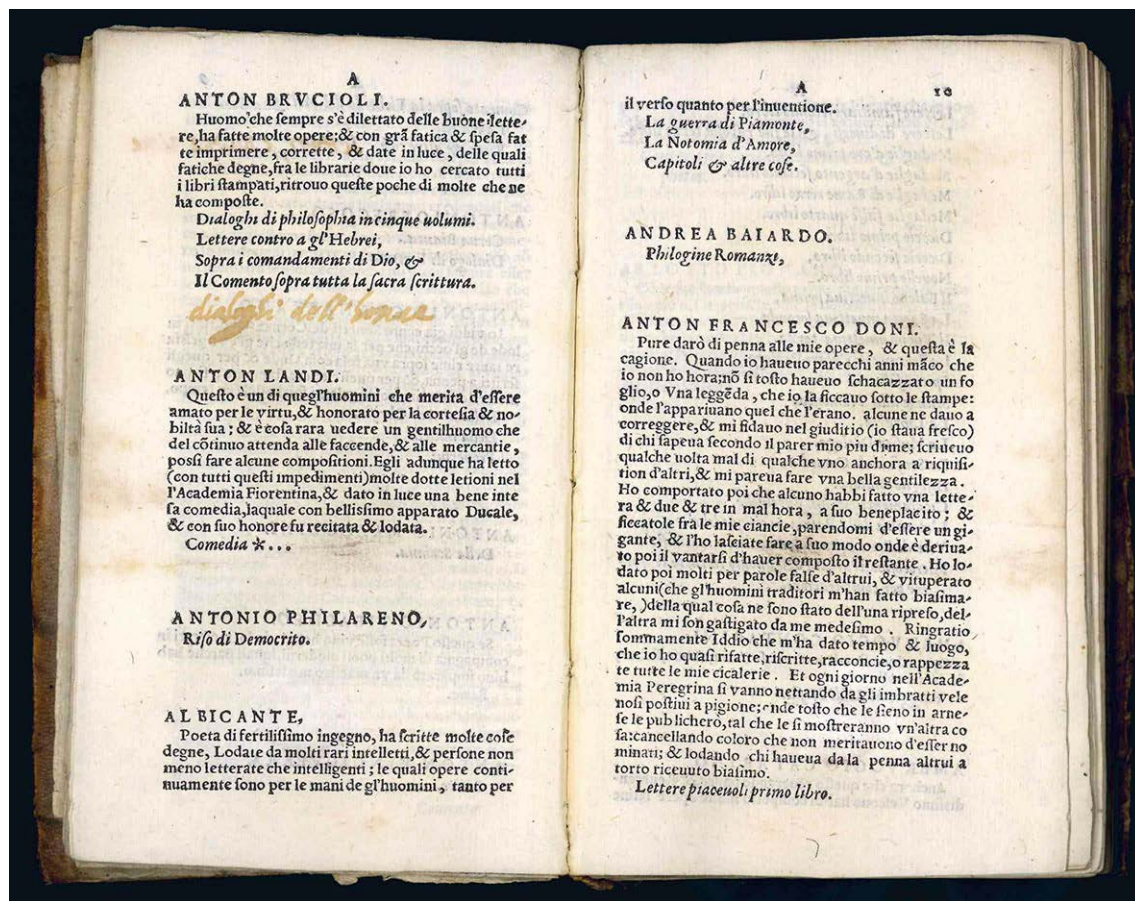 A
ANTON BRVCIOLI.
Huomo che ſempre s'è dilettato delle buone lette-
re, ha fatte molte opere: & con grã fatica & ſpeſa fat
te imprimere, corrette, & date in luce, delle quali
fatiche degne, fra le librarie doue io ho cercato tutti
i libri ſtampati, ritrouo queſte poche di molte che ne
ha compoſte.
Dialoghi di philoſophia in cinque uolumi.
Lettere contro a gl'Hebrei,
Sopra i comandamenti di Dio, &
Il Comento ſopra tutta la ſacra ſcrittura.
dialoghi dell'
ANTON LANDI.
Queſto è un di quegl'huomini che merita d'eſſere
amato per le virtu, & honorato per la corteſia & no-
biltà ſua; & è coſa rara uedere un gentilhuomo che
del cõtinuo attenda alle faccende, & alle mercantie,
poſſi fare alcune compoſitioni. Egli adunque ha letto
(con tutti queſti impedimenti) molte dotte letioni nel
l'Academia Fiorentina, & dato in luce una bene inte
ſa comedia, laquale con belliſſimo apparato Ducale,
& con ſuo honore fu recitata & lodata.
Comedia *...
ANTONIO PHILARENO,
Riſo di Democrito.
ALBICANTE,
Poeta di fertiliſſimo ingegno, ha ſcritte molte coſe
degne, Lodate da molti rari intelletti, & perſone non
meno letterate che intelligenti; le quali opere conti-
nuamente ſono per le mani de gl'huomini, tanto per
A 10
il verſo quanto per l'inuentione.
La guerra di Piamonte,
La Notomia d'Amore,
Capitoli & altre coſe.
ANDREA BAIARDO.
Philogine Romanzi,
ANTON FRANCESCO DONI.
Pure darò di penna alle mie opere, & queſta è la
cagione. Quando io haueuo parecchi anni mãco che
io non ho hora; nõ ſi toſto haueuo ſchacazzato un fo
glio, o Vna leggẽda, che io la ficcauo ſotto le ſtampe:
onde l'appariuano quel che l'erano. alcune ne dauo a
correggere, & mi fidauo nel giuditio (io ſtaua freſco)
di chi ſapeua ſecondo il parer mio piu di me; ſcriueuo
qualche uolta mal di qualche vno anchora a riquiſi-
tion d'altri, & mi pareua fare vna bella gentilezza.
Ho comportato poi che alcuno habbi fatto vna lette-
ra & due & tre in mal hora, a ſuo beneplacito; &
ficcatole fra le mie ciancie, parendomi d'eſſere un gi-
gante, & l'ho laſciate fare a ſuo modo onde è deriua-
to poi il vantarſi d'hauer compoſto il reſtante. Ho lo-
dato poi molti per parole falſe d'altrui, & vituperato
alcuni (che gl'huomini traditori m'han fatto biaſima-
re,) della qual coſa ne ſono ſtato dell'una ripreſo, del-
l'altra mi ſon gaſtigato da me medeſimo. Ringratio
ſommamente Iddio che m'ha dato tempo & luogo,
che io ho quaſi rifatte, riſcritte, racconcie, o rappezza
te tutte le mie cicalerie. Et ogni giorno nell'Acade-
mia Peregrina ſi vanno nettando da gli imbratti vele
noſi poſtiui a pigione; onde toſto che le ſieno in arne-
ſe le publicherò, tal che le ſi moſtreranno vn'altra co
ſa: cancellando coloro che non meritauono d'eſſer no
minati; & lodando chi haueua da la penna altrui a
torto riceuuto biaſimo.
Lettere piaceuoli primo libro.